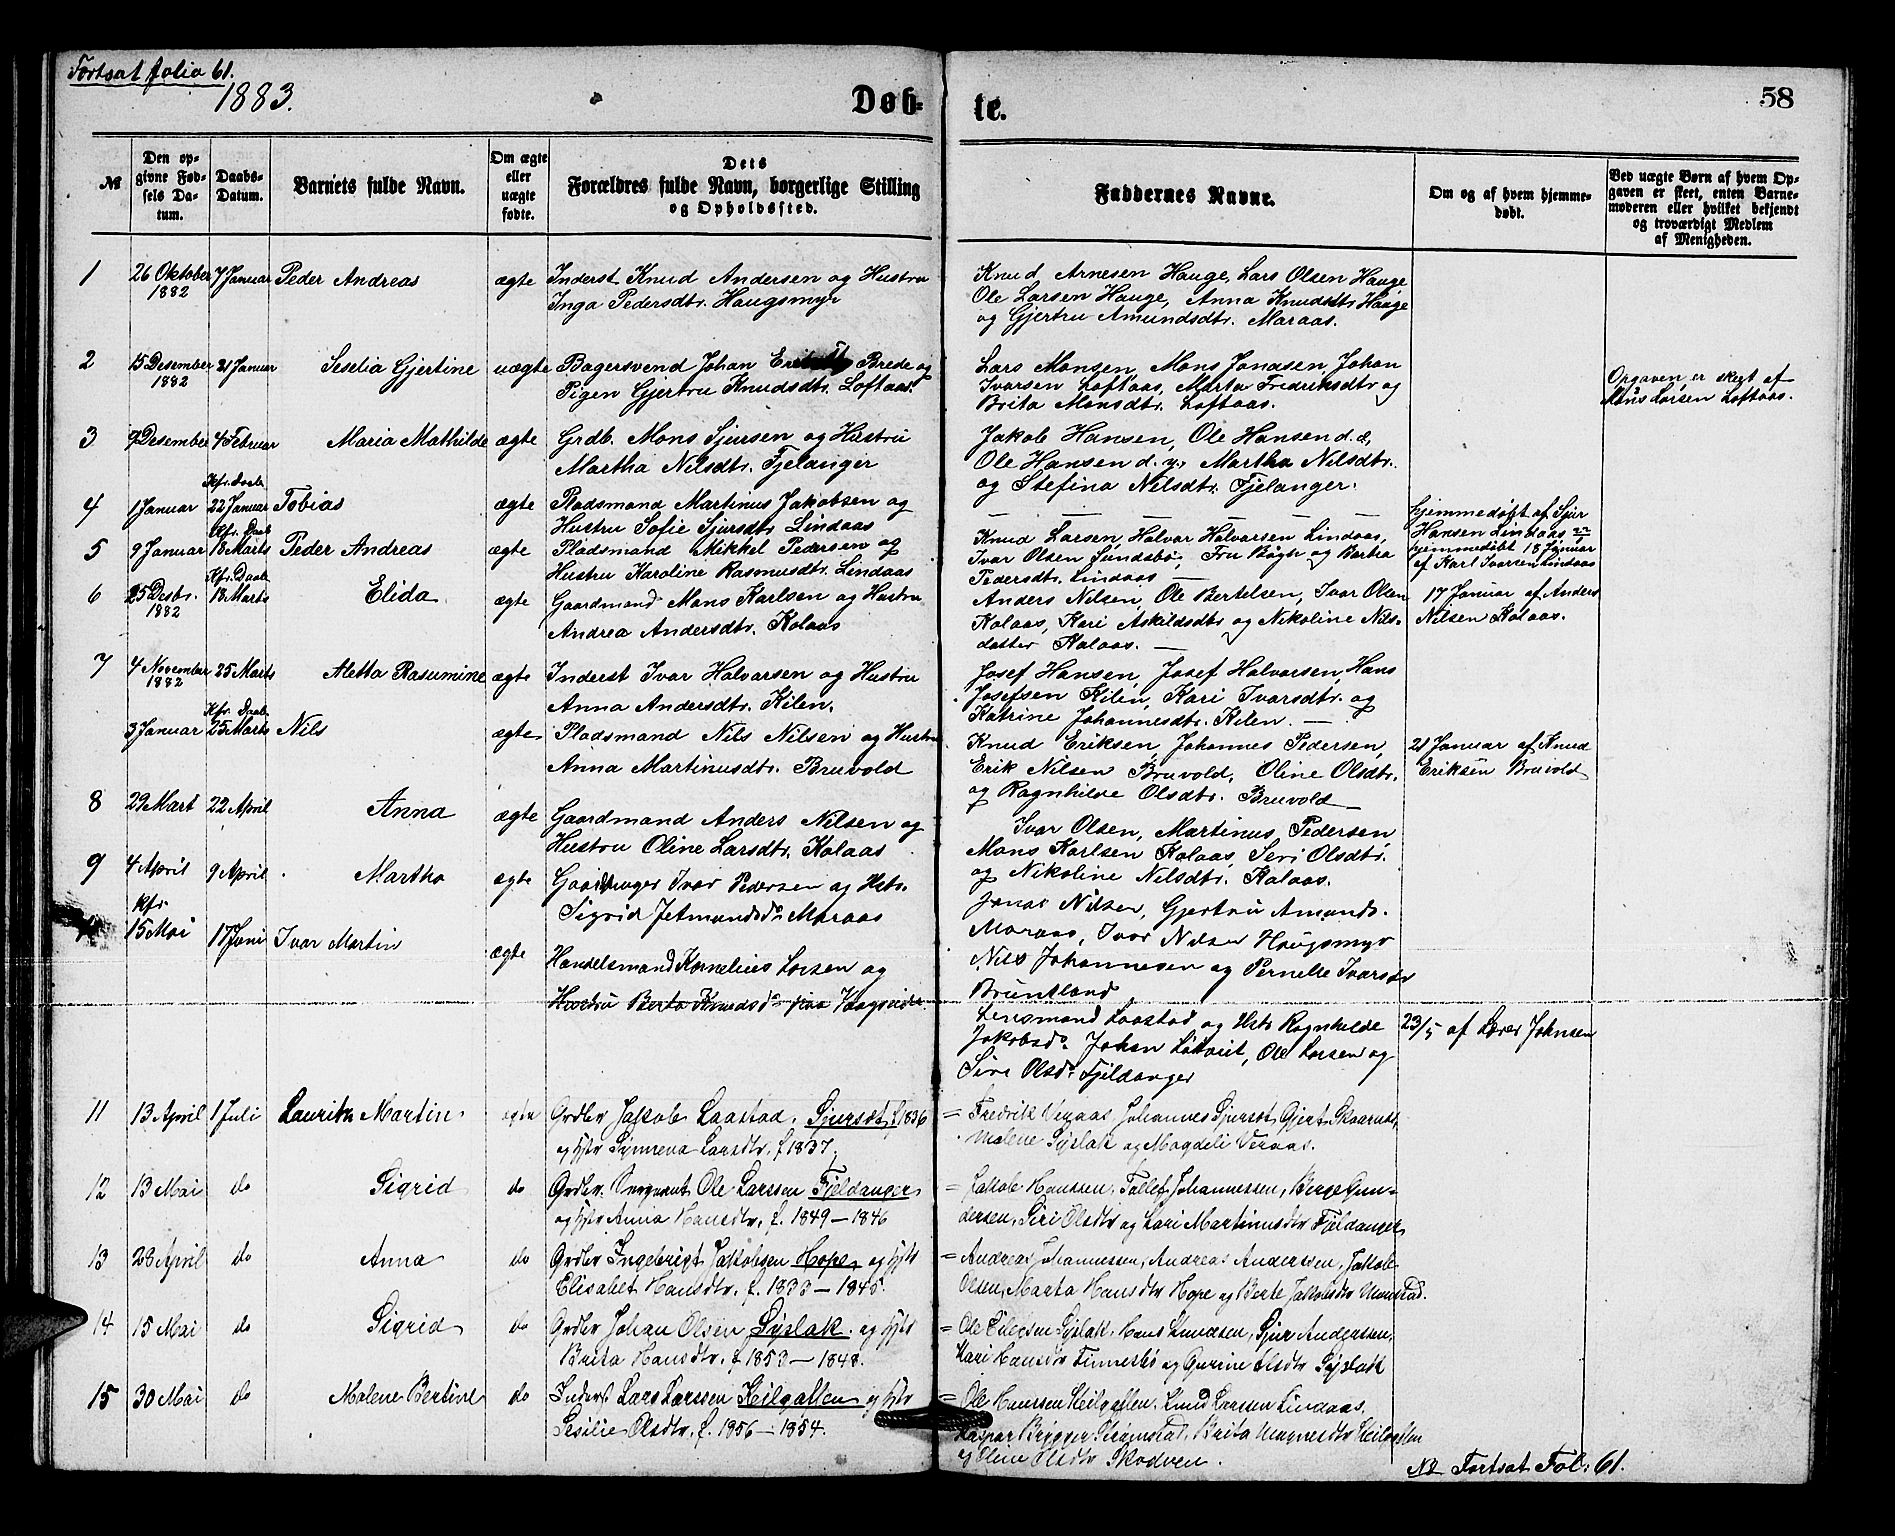 Fortsat folio 61.
1883.
Døb-
te.
58
№
Den op-
givne Fød-
sels Da-
tum.
Daabs-
Datum.
Barnets fulde Navn.
Om ægte
eller
uægte
fødte.
Dets
Forældres fulde Navn, borgerlige Stilling
og Opholdssted.
Faddernes Navne.
Om og af hvem hjemme-
døbt.
Ved uægte Børn af hvem Op-
gaven er skeet, enten Barne-
moderen eller hvilket bekjendt
og troværdigt Medlem
af Menigheden.
1 26 Oktober 1882 7 Januar Peder Andreas ægte Inderst Knud Andersen og Hustru
Inga Pedersdtr. Haugsmyr
Knud Arnesen Hauge, Lars Olsen Hauge
Ole Larsen Hauge, Anna Knudsdtr Hauge
og Gjertru Amundsdtr. Maraas.
2 15 Desember 1882 21 Januar Seselia Gjertine uægte Bagersvend Johan Brede og
Pigen Gjertru Knudsdtr. Loftaas.
Lars Monsen, Mons Jonasen, Johan
Ivarsen Loftaas, Marta Fredriksdtr og
Brita Monsdtr. Loftaas.
Opgaven er skeet af
Mons Larsen Loftaas.
3 7 Desember 4 Februar Maria Mathilde ægte Grdb. Mons Sjursen og Hustru
Martha Nilsdtr. Fjelanger
Jakob Hansen, Ole Hansen d. æ,
Ole Hansen d. y., Martha Nilsdtr.
og Stefina Nilsdtr. Fjelanger.
4 1 Januar Kfr. Daab 22 Januar Tobias ægte Pladsmand Martinus Jakobsen og
Hustru Sofie Sjursdtr Lindaas
— — — — —
hjemmedøbt af Sjur
Hansen Lindaas
5 9 Januar Kfr. Daab 18 Marts Peder Andreas ægte Pladsmand Mikkel Pedersen og
Hustru Karoline Rasmusdtr. Lindaas
Knud Larsen, Halvar Halvarsen Lindaas,
Ivar Olsen Sundebø, Fru Bøgh og Bertha
Pedersdtr. Lindaas —
hjemmedøbt 18 Januar
af Karl Ivarsen Lindaas
6 25 Desbr. 1882 Kfr. Daab 18 Marts Elida ægte Gaardmand Mons Karlsen og Hustru
Andrea Andersdtr. Kolaas
Anders Nilsen, Ole Bertelsen, Ivar Olsen
Kolaas, Kari Askildsdtr og Nikoline Nils-
datter Kolaas. —
17 Januar af Anders
Nilsen Kolaas.
7 4 November 1882 25 Marts Aletta Rasumine ægte Inderst Ivar Halvarsen og Hustru
Anna Andersdtr. Kilen.
Josef Hansen, Josef Halvorsen, Hans
Josefsen Kilen, Kari Ivarsdtr. og
Katrine Johannesdtr. Kilen. —
3 Januar Kfr. Daab 25 Marts Nils ægte Pladsmand Nils Nilsen og Hustru
Anna Martinusdtr. Bruvold
Knud Eriksen, Johannes Pedersen,
Erik Nilsen Bruvold, Oline Olsdtr.
og Ragnhilde Olsdtr. Bruvold —
21 Januar af Knud
Eriksen Bruvold
8 29 Mart 22 April Anna ægte Gaardmand Anders Nilsen og
Hustru Oline Larsdtr. Kolaas
Ivar Olsen, Martinus Pedersen
Mons Karlsen Kolaas, Seri Olsdtr.
og Nikoline Nilsdtr. Kolaas.
9 4 April 9 April Martha ægte Ivar Pedersen og Hstr.
Sigrid Jetmundsdr Maraas
Jonas Nilsen, Gjertru Amunds.
Maraas, Ivar Nilsen Haugsmyr
Nils Johannesen og Pernelle Ivarsdr
Bruntland
kfr 15 Mai 17 Juni Ivar Martin ægte Handelsmand Kornelius Larsen og
Hustru Berta Knudsdr paa Vaagseidet
Lensmand Laastad og Hstr Ragnhilde
Jakobsdr. Johan Løtveit, Ole Larsen og
Siri Olsdr Fjeldanger
23/5 af Lærer Johnsen
11 13 April 1 Juli Lauritz Martin ægte Grdbr Jakob Laastad, Sjursæt f. 1836
og Hstr Synneva Larsdtr. f 1837.
= Fredrik Veraas, Johannes Sjursæt, Gjert Skaarnes,
Malene Syslak og Magdeli Veraas.
12 13 Mai do Sigrid do Grdbr. Sergeant Ole Larssen Fjeldanger
og Hstr Anna Hansdtr. f. 1849 — 1846
= Jakob Hanssen, Tollef Johannessen, Berge Gun-
dersen, Siri Olsdtr og Kari Martinusdtr Fjeldanger
13 28 April do Anna do Grdbr Ingebrigt Jakobsen Hope og Hstr
Elisabet Hansdtr. f. 1833 — 1845.
= Andreas Johannessen, Andreas Anderssen, Jakob
Olsen, Marta Hansdtr Hope og Berte Jakobsdtr Monstad.
14 15 Mai do Sigrid do Grdbr Johan Olsen Syslak og Hstr
Brita Hansdtr. f 1853 — 1848.
= Ole Eilertsen Syslak, Hans Knudsen, Sjur Anderssen,
Kari Hansdtr Finnesbø og Gurine Olsdtr Syslak
15 30 Mai do Malene Bertine do Inderst Lars Larssen Keilgatten og Hstr
Sesilie Olsdtr. f. 1856 — 1854.
= Ole Hanssen Keilgatten, Knud Larsen Lindaas,
Kaspar Brygger Strømstad, Brita Magnesdtr Keilgatten
og Oline Olsdtr Skodven.
NB Fortsat Fol: 61.